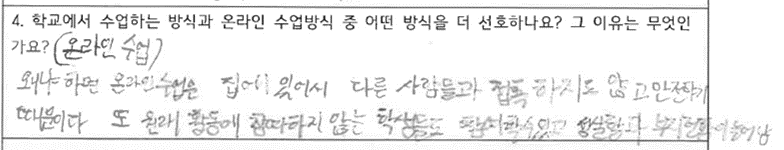 4. 학교에서 수업하는 방식과 온라인 수업방식 중 어떤 방식을 더 선호하나요? 그 이유는 무엇인
가요? (온라인 수업)
왜냐 하면 온라인수업은 집에 있어서 다른 사람들과 접촉 하지도 않고 안전하기
때문이다 또 원래 활동에 참여하지 않는 학생들도 참여할수있고 성실함과